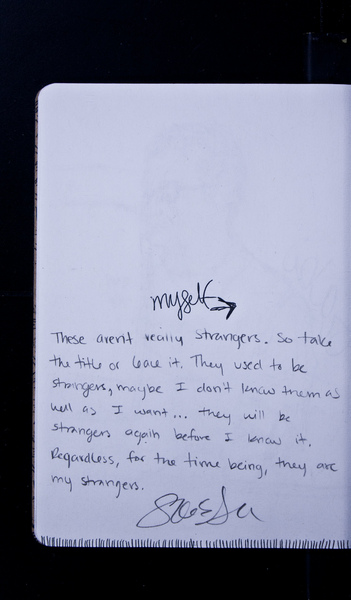 myself
These aren't really strangers. So take
the title or leave it. They used to be
strangers, maybe I don't know them as
well as I want... they will be
strangers again before I know it.
Regardless, for the time being, they are
my strangers.